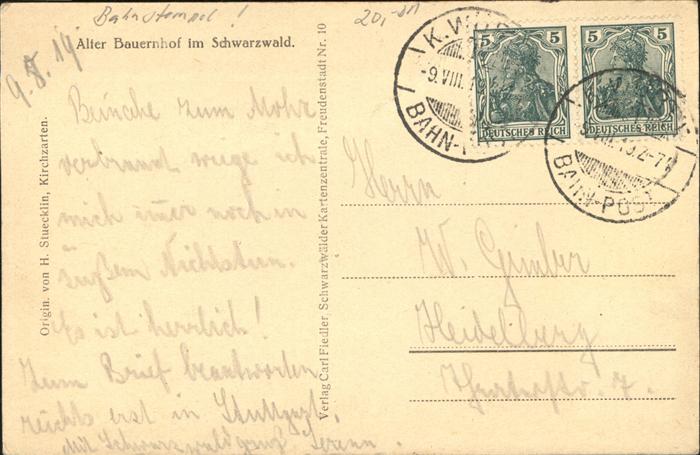 Bahnstempel!
20,- DM
Alter Bauernhof im Schwarzwald.
9.8.19
Beinahe zum Mohr
verbrannt wiege ich
mich immer noch in
süßem Nichtstun.
Es ist herrlich!
Zum Brief beantworten
reichts erst in Stuttgart.
Mit Schwarzwaldgruß
Origin. von H. Stuecklin, Kirchzarten.
Verlag Carl Fiedler, Schwarzwälder Kartenzentrale, Freudenstadt Nr. 10
5 5
DEUTSCHES REICH
5 5
DEUTSCHES REICH
K.W
-9.VIII.
BAHN-
BAHN-POST
Herrn
W. Gimber
Heidelberg
7.